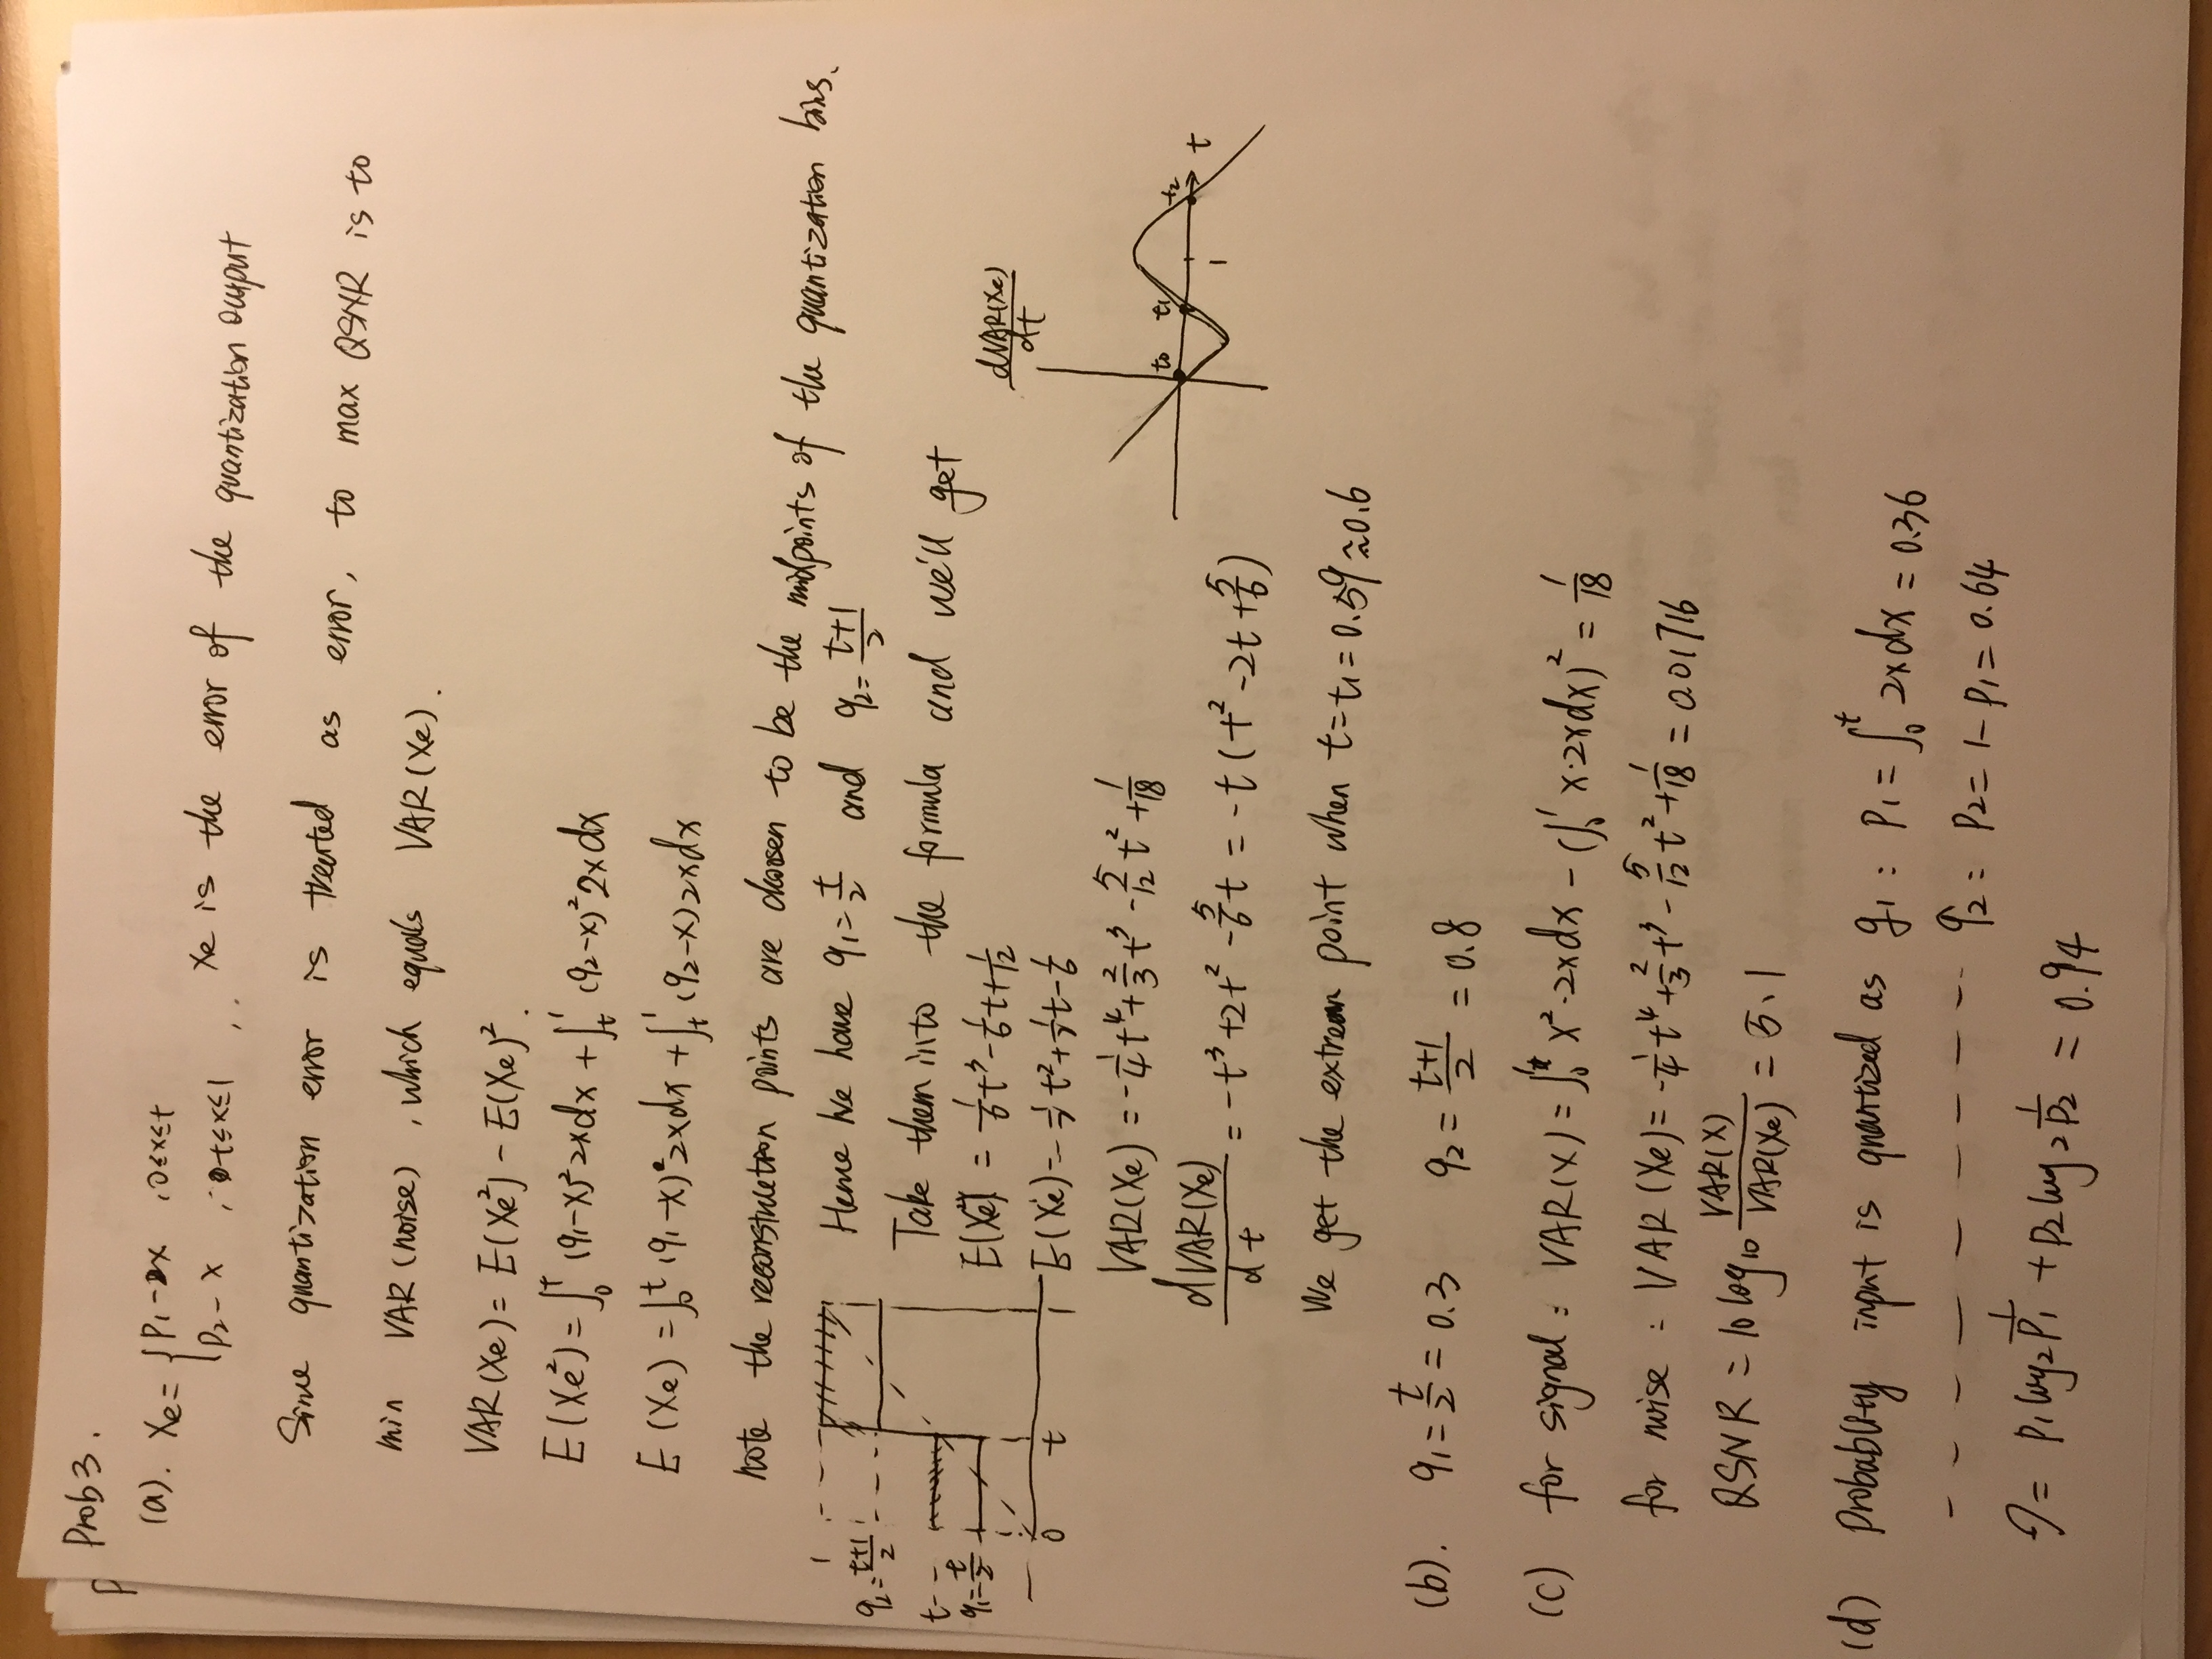 P
Prob 3.
(a). Xe = { P1 - x , 0≤x≤t
P2 - x , t≤x≤1 , Xe is the error of the quantization output
Since quantization error is treated as error, to max QSNR is to
min VAR(noise), which equals VAR(Xe).
VAR(Xe) = E(Xe²) - E(Xe)².
E(Xe²) = ∫₀ᵗ (q1-x)² 2x dx + ∫ₜ¹ (q2-x)² 2x dx
E(Xe) = ∫₀ᵗ (q1-x) 2x dx + ∫ₜ¹ (q2-x) 2x dx
note the reconstruction points are choosen to be the midpoints of the quantization bins.
Hence we have q1 = t/2 and q2 = (t+1)/2
Take them into the formula and we'll get
E(Xe²) = 1/6 t³ - 1/6 t + 1/12
E(Xe) = - 1/2 t² + 1/2 t - 1/6
VAR(Xe) = -1/4 t⁴ + 2/3 t³ - 5/12 t² + 1/18
dVAR(Xe)/dt = -t³ + 2t² - 5/6 t = -t (t² - 2t + 5/6)
We get the extrem point when t = t1 = 0.59 ≈ 0.6
1
q2 = (t+1)/2
t
q1 = t/2
0 t 1
dVAR(Xe)/dt
t0 t1 t2 t
1
(b). q1 = t/2 = 0.3 q2 = (t+1)/2 = 0.8
(c) for signal : VAR(X) = ∫₀¹ x²·2x dx - (∫₀¹ x·2x dx)² = 1/18
for noise : VAR(Xe) = -1/4 t⁴ + 2/3 t³ - 5/12 t² + 1/18 = 0.01716
QSNR = 10 log₁₀ VAR(X)/VAR(Xe) = 5.1
(d) Probability input is quantized as q1 : P1 = ∫₀ᵗ 2x dx = 0.36
- - - - - - - - - - - q2 : P2 = 1 - P1 = 0.64
= P1 log₂ 1/P1 + P2 log₂ 1/P2 = 0.94